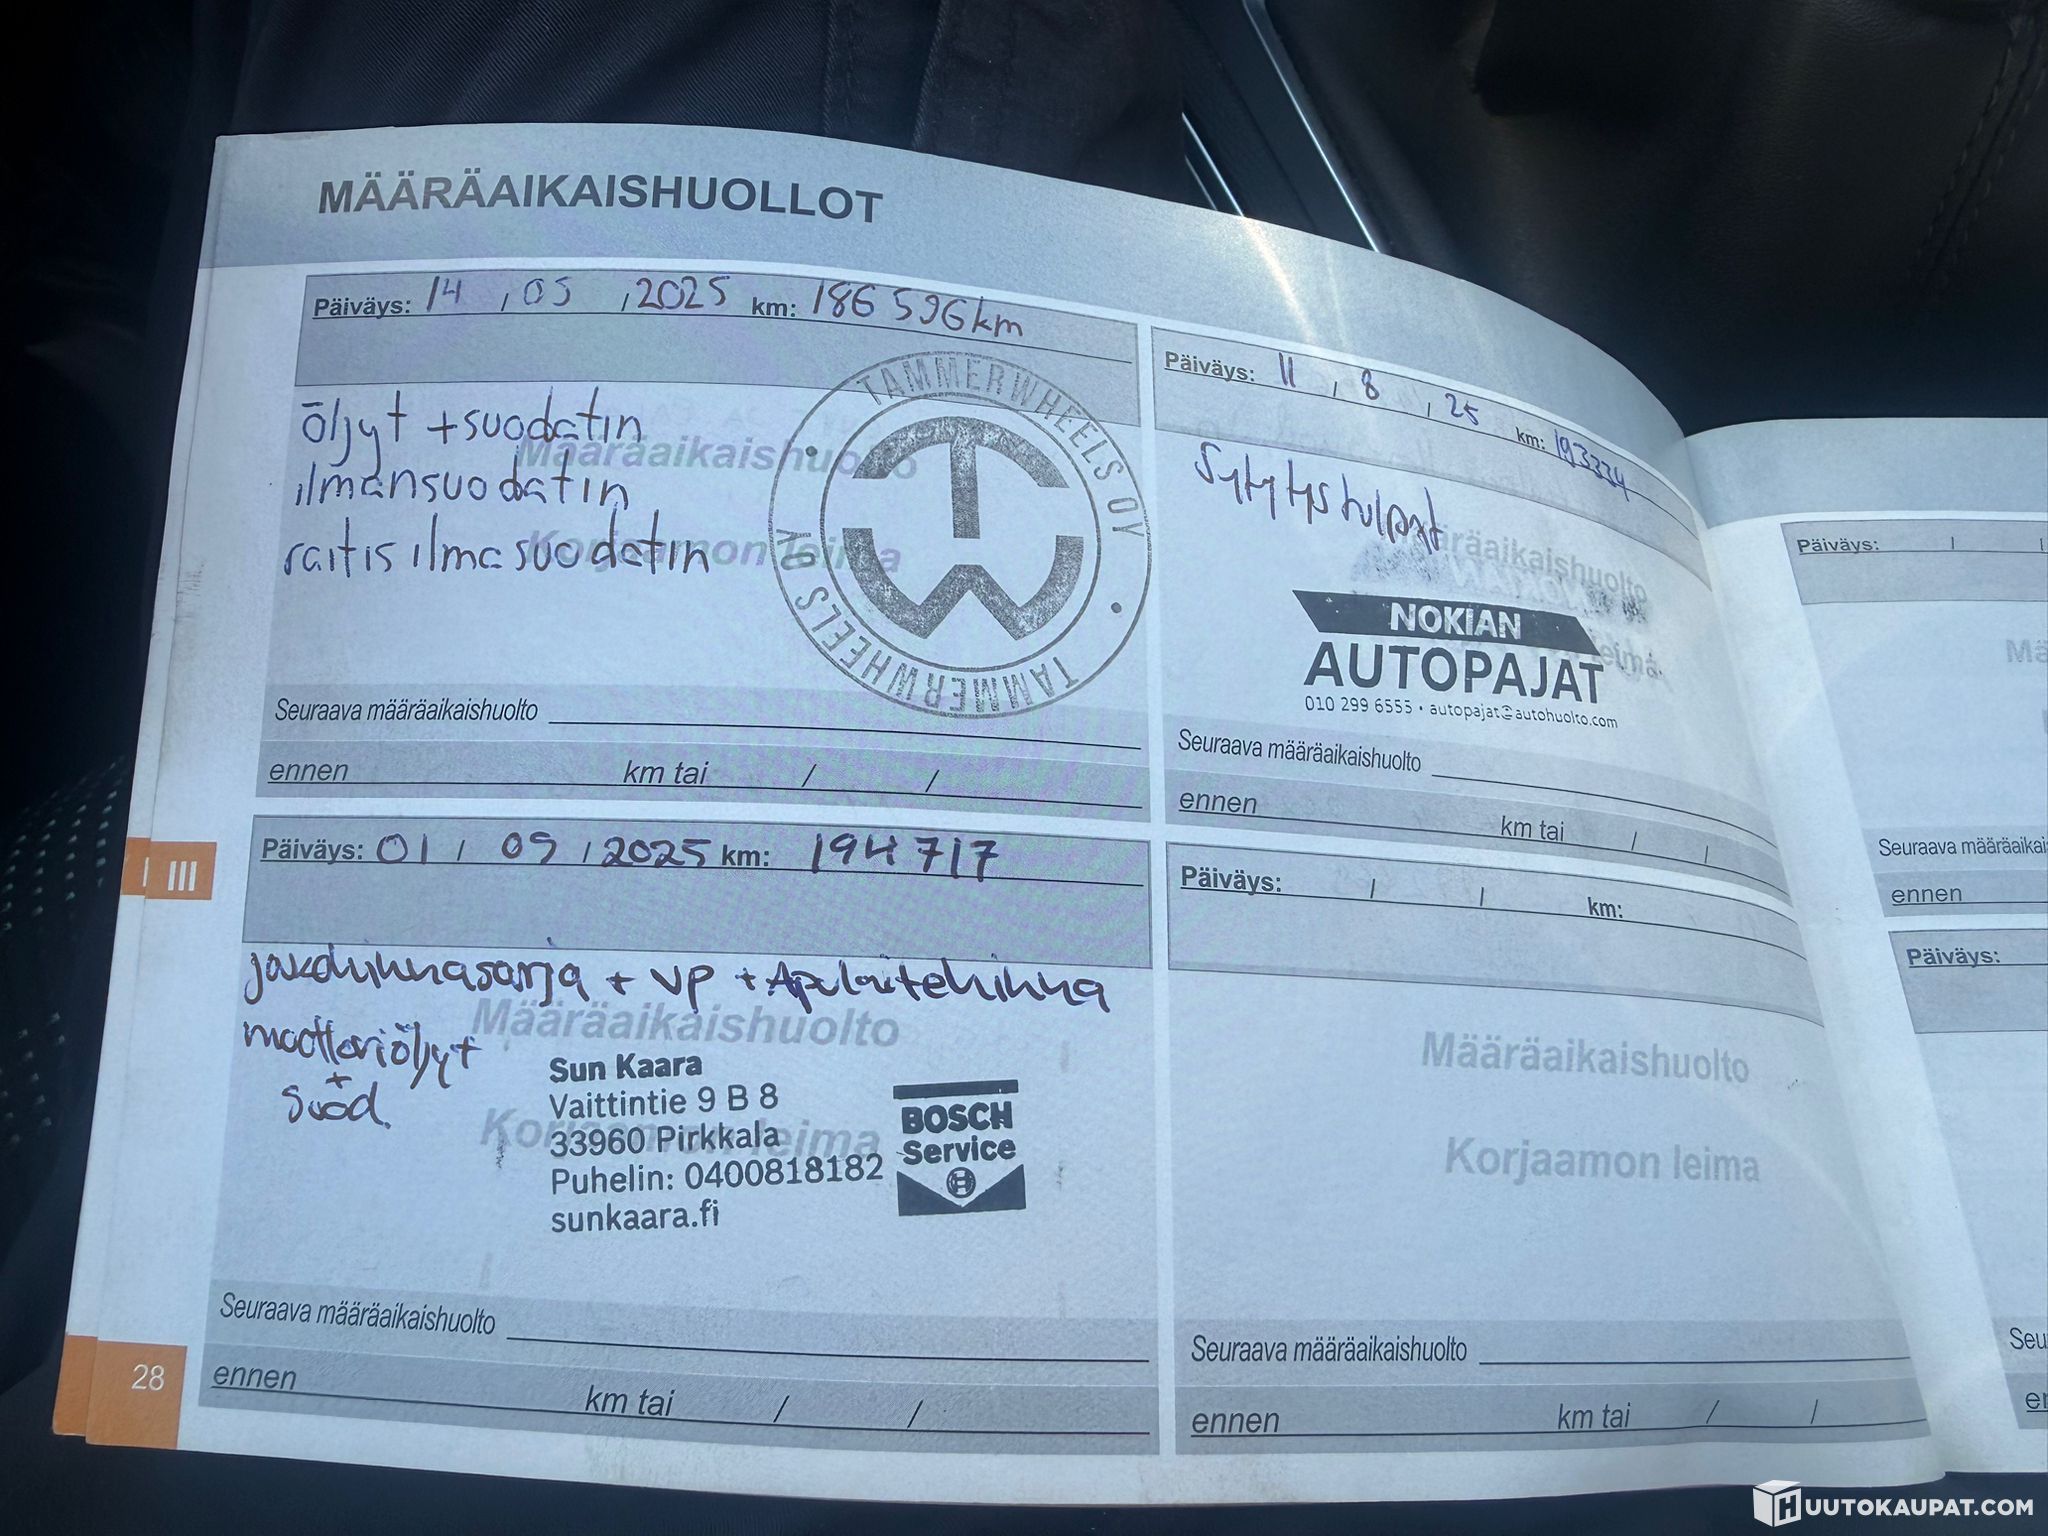 MÄÄRÄAIKAISHUOLLOT
Päiväys: 14 , 05 , 2025 km: 186 596 km
öljyt + suodatin
ilmansuodatin
raitis ilma suodatin
Määräaikaishuolto
Korjaamon leima
TAMMERWHEELS OY • TAMMERWHEELS OY •
TW
Seuraava määräaikaishuolto
ennen km tai / /
Päiväys: 11 , 8 , 25 km: 193334
Sytytystulpat
Määräaikaishuolto
leima
NOKIAN
AUTOPAJAT
010 299 6555 • autopajat@autohuolto.com
Seuraava määräaikaishuolto
ennen km tai / /
III
Päiväys: 01 / 09 / 2025 km: 194 717
jakohihnasarja + vp + Apulaitehihna
moottoriöljyt
+
suod.
Määräaikaishuolto
Korjaamon leima
Sun Kaara
Vaittintie 9 B 8
33960 Pirkkala
Puhelin: 0400818182
sunkaara.fi
BOSCH
Service
Seuraava määräaikaishuolto
ennen km tai / /
28
Päiväys: / / km:
Määräaikaishuolto
Korjaamon leima
Seuraava määräaikaishuolto
ennen km tai / /
Päiväys: / /
Mä
Seuraava määräaikai
ennen
Päiväys:
Seu
en
HUUTOKAUPAT.COM